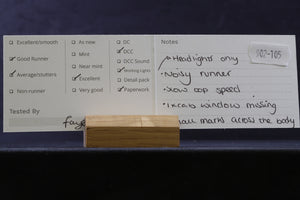 Excellent/smooth
Good Runner
Average/stutters
Non runner
Tested By
As new
Mint
Near mint
Excellent
Very good
DC
DCC
DCC Sound
Working Lights
Detail pack
Paperwork
Notes
902-T05
Headlights only
Noisy runner
low top speed
1x cab window missing
marks across the body